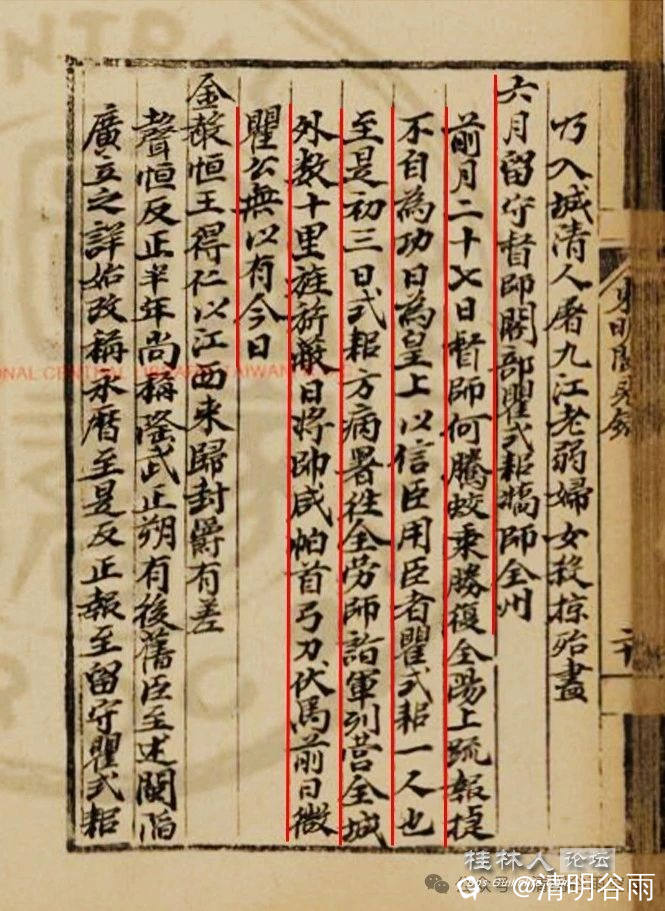 乃入城清人屠九江老弱婦女殺掠殆盡
六月留守督師閣部瞿式耜犒師全州
前月二十七日督師何騰蛟乘勝復全陽上疏報捷
不自為功曰為皇上以信臣用臣者瞿式耜一人也
至是初三日式耜方病暑往全劳師諸軍列营全城
外数十里旌旂蔽日將帥咸帕首弓刀伏馬前曰微
瞿公無以有今日
金聲恒王得仁以江西来歸封爵有差
聲恒反正半年尚稱隆武正朔有後舊臣至述閩
廣立之詳始改稱永曆至是反正報至留守瞿式耜
桂林人论坛
@清明谷雨